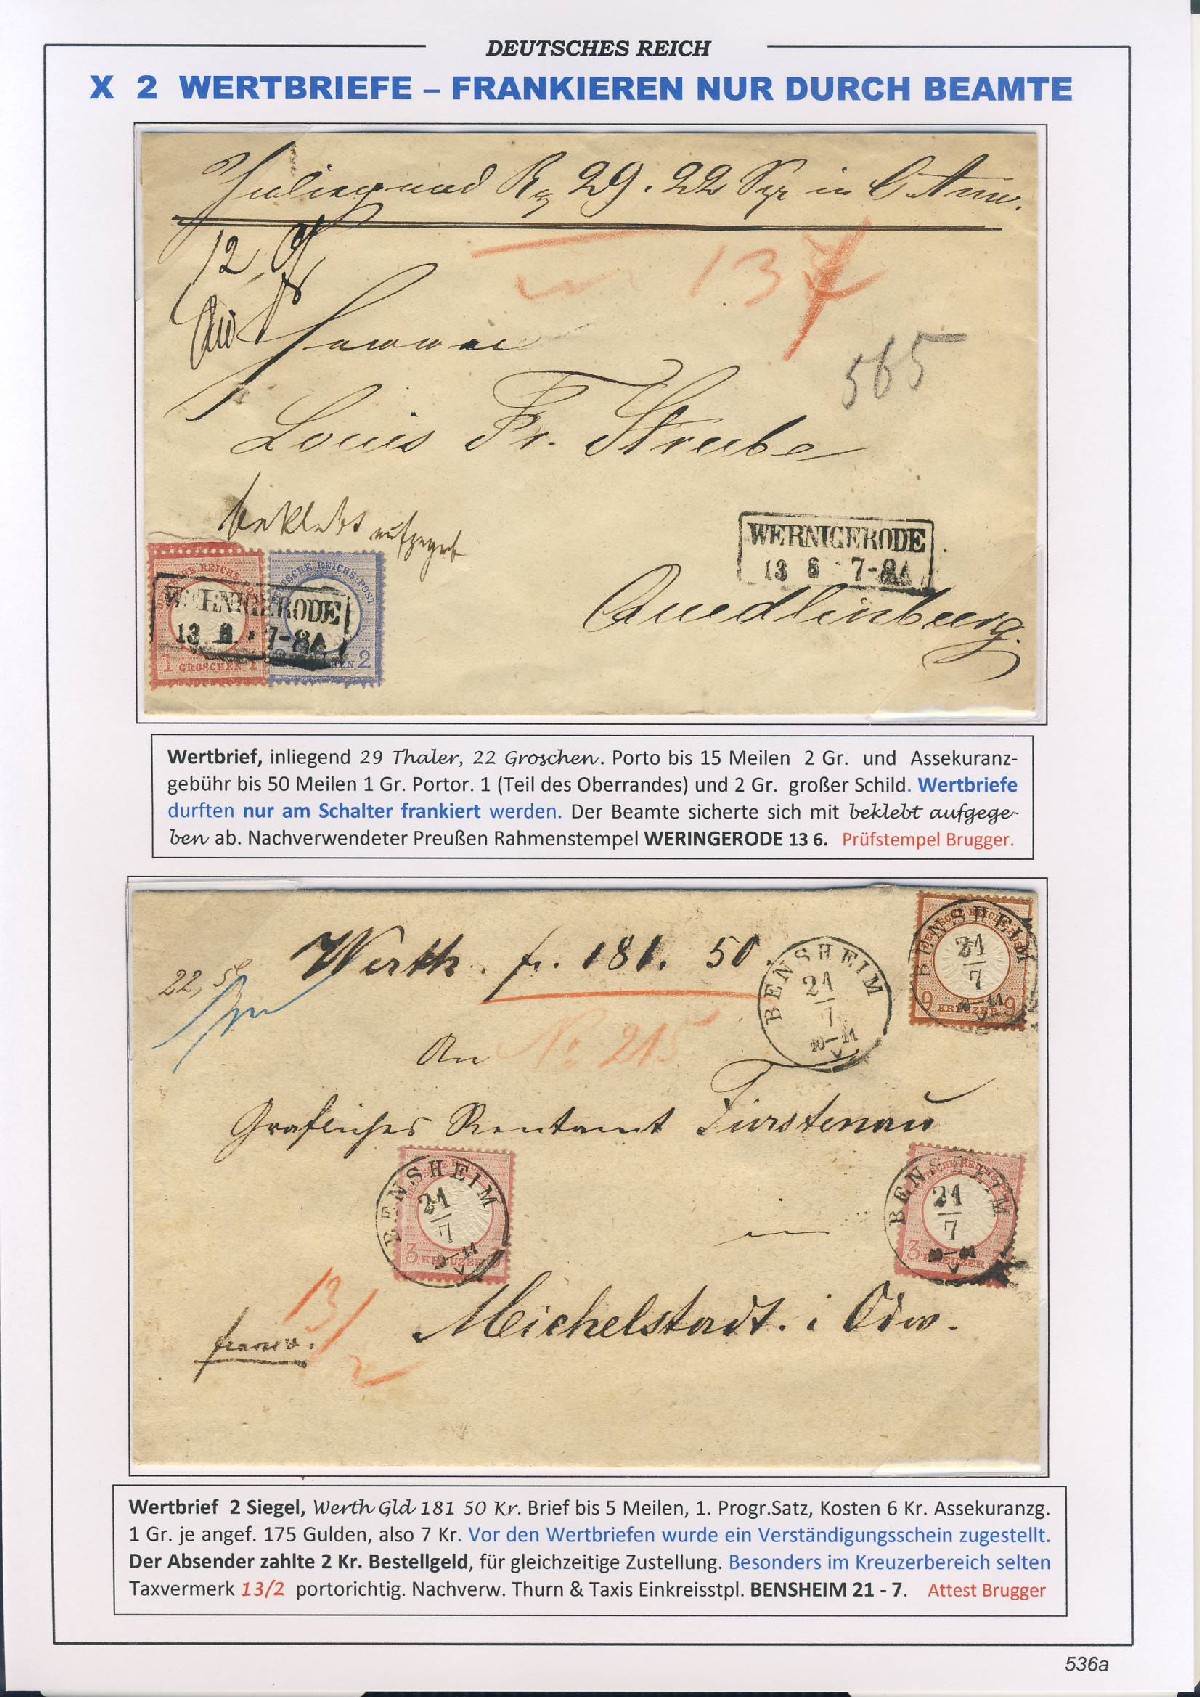 DEUTSCHES REICH
X 2 WERTBRIEFE – FRANKIEREN NUR DURCH BEAMTE
29. 22 Sgr in
12
137
565
Louis Fr. Strube
beklebt aufgegeb
WERNIGERODE
13 6 7-8A
Quedlinburg.
WERNIGERODE
13 6. 7-8A
1 GROSCHEN 1
2
Wertbrief, inliegend 29 Thaler, 22 Groschen. Porto bis 15 Meilen 2 Gr. und Assekuranz-
gebühr bis 50 Meilen 1 Gr. Portor. 1 (Teil des Oberrandes) und 2 Gr. großer Schild. Wertbriefe
durften nur am Schalter frankiert werden. Der Beamte sicherte sich mit beklebt aufgege-
ben ab. Nachverwendeter Preußen Rahmenstempel WERINGERODE 13 6. Prüfstempel Brugger.
Werth. fr. 181. 50.
BENSHEIM
21
7
10-11
BENSHEIM
21
7
9 KREUZER 9
An
No 215
Gräfliches Rentamt Fürstenau
BENSHEIM
21
7
3 KREUZER
BENSHEIM
21
7
3 KREUZER
in
13/2
franco.
Michelstadt. i Odw.
Wertbrief 2 Siegel, Werth Gld 181 50 Kr. Brief bis 5 Meilen, 1. Progr.Satz, Kosten 6 Kr. Assekuranzg.
1 Gr. je angef. 175 Gulden, also 7 Kr. Vor den Wertbriefen wurde ein Verständigungsschein zugestellt.
Der Absender zahlte 2 Kr. Bestellgeld, für gleichzeitige Zustellung. Besonders im Kreuzerbereich selten
Taxvermerk 13/2 portorichtig. Nachverw. Thurn & Taxis Einkreisstpl. BENSHEIM 21 - 7. Attest Brugger
536a